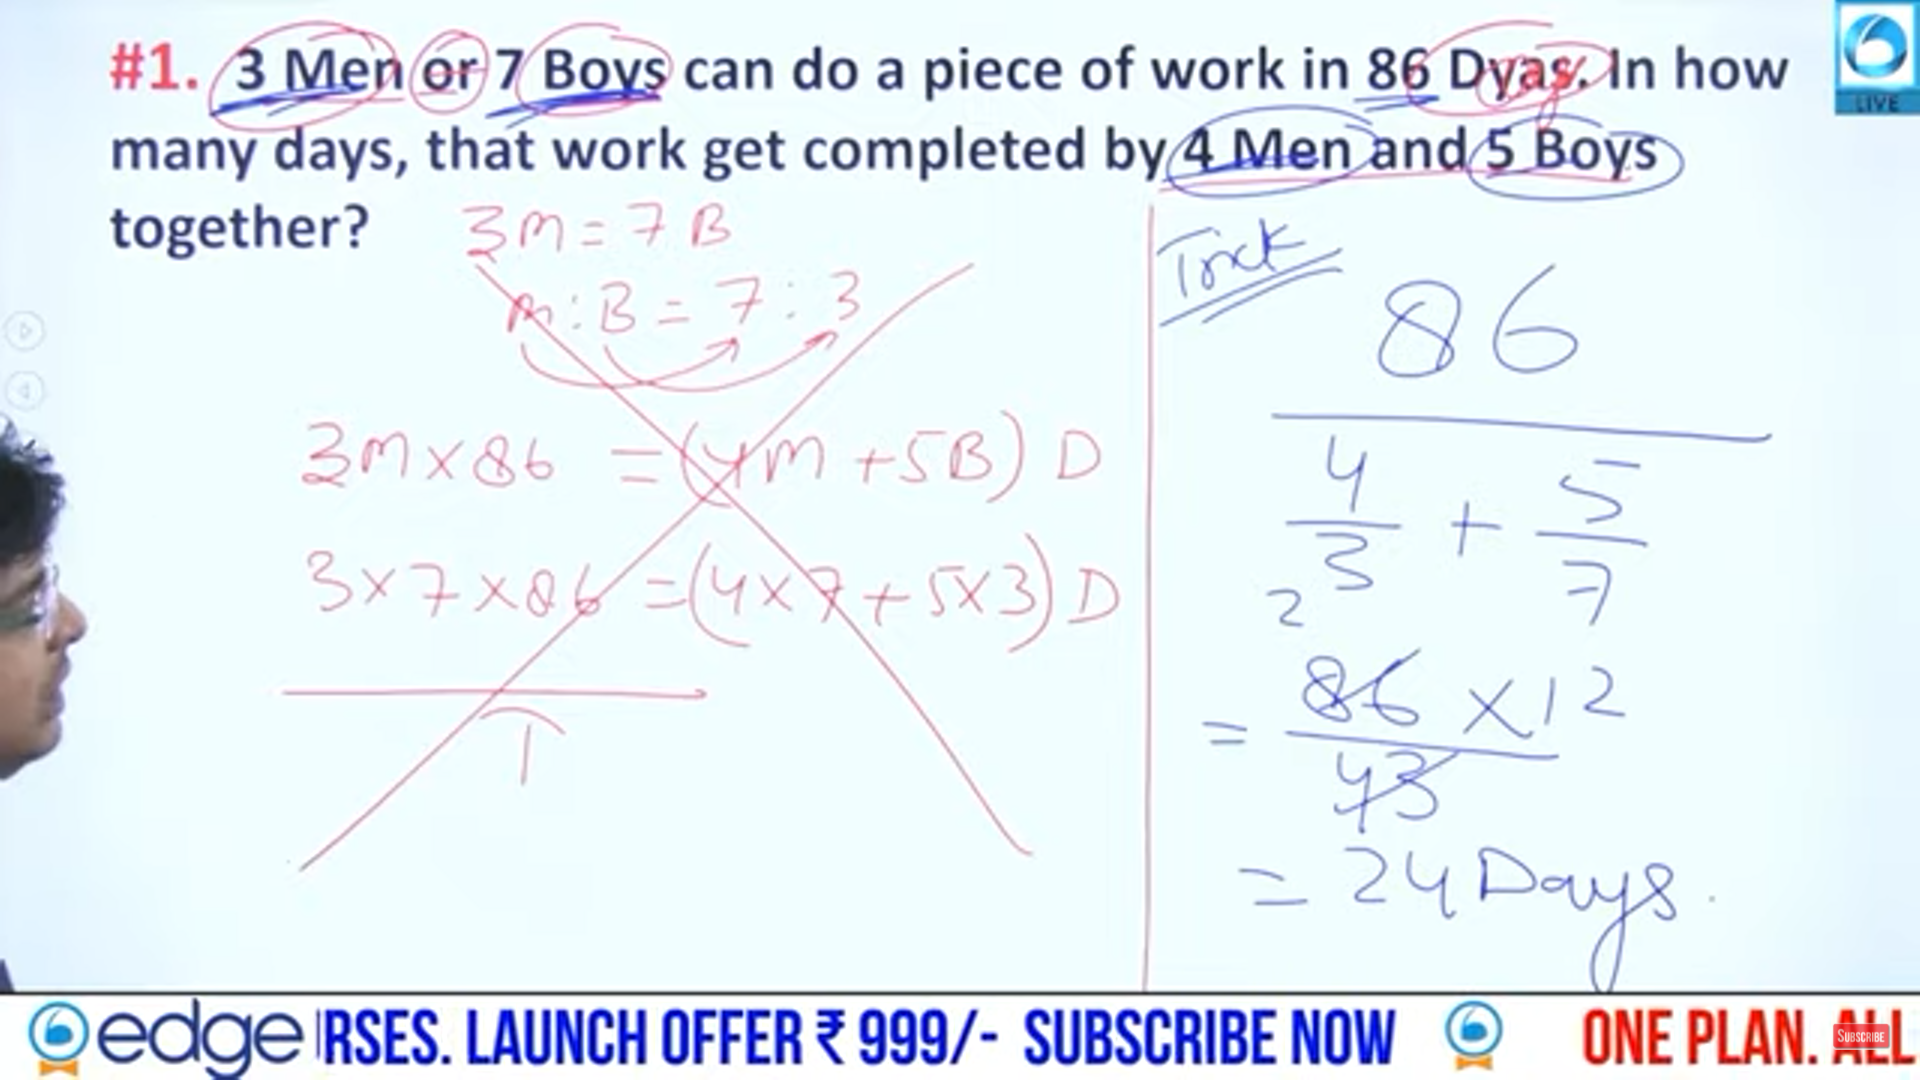 #1. 3 Men or 7 Boys can do a piece of work in 86 Dyas. In how
many days, that work get completed by 4 Men and 5 Boys
together?
3M = 7B
M : B = 7 : 3
3M × 86 = (4M + 5B) D
3 × 7 × 86 = (4 × 7 + 5 × 3) D
Trick
86
4 + 5
3 7
2
= 86 × 12
43
= 24 Days.
LIVE
edge RSES. LAUNCH OFFER ₹ 999/- SUBSCRIBE NOW ONE PLAN. ALL
SUBSCRIBE